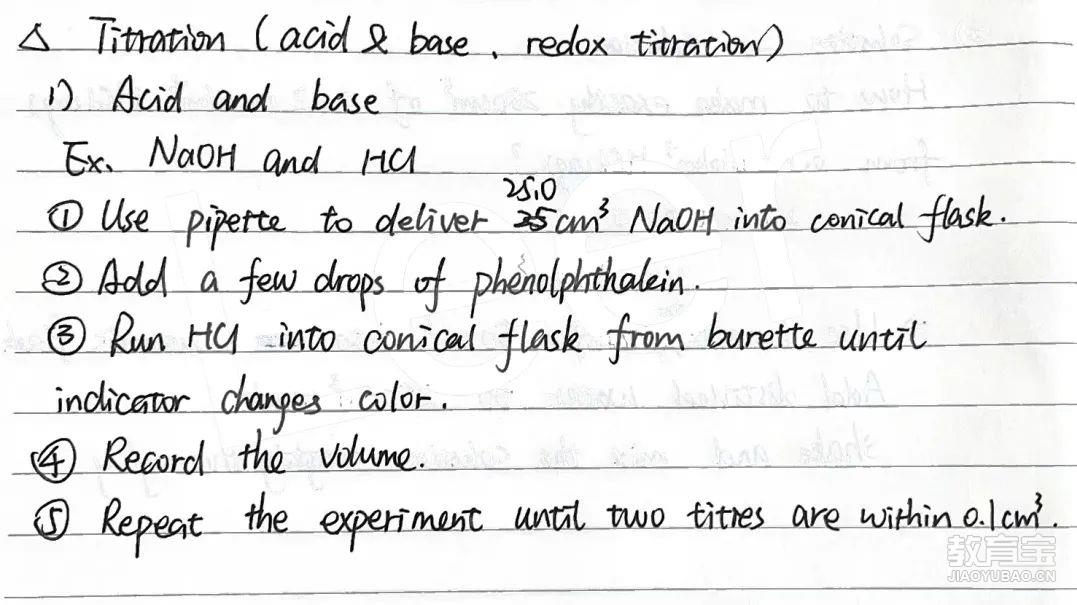 △ Titration (acid & base, redox titration)
1) Acid and base
Ex. NaOH and HCl
25.0
① Use pipette to deliver 25cm³ NaOH into conical flask.
② Add a few drops of phenolphthalein.
③ Run HCl into conical flask from burette until
indicator changes color.
④ Record the volume.
⑤ Repeat the experiment until two titres are within 0.1cm³.
教育宝
JIAOYUBAO.CN